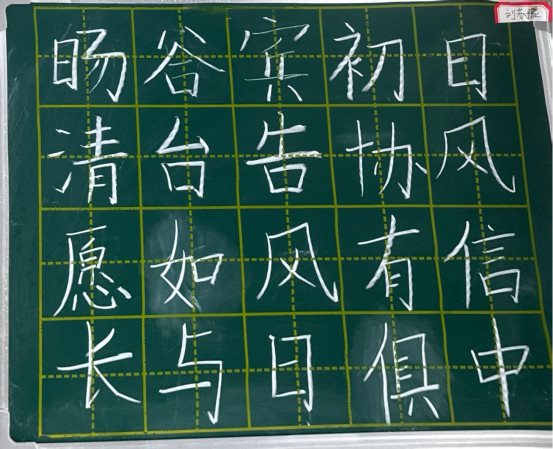 旸谷宾初日
清台告协风
愿如风有信
长与日俱中